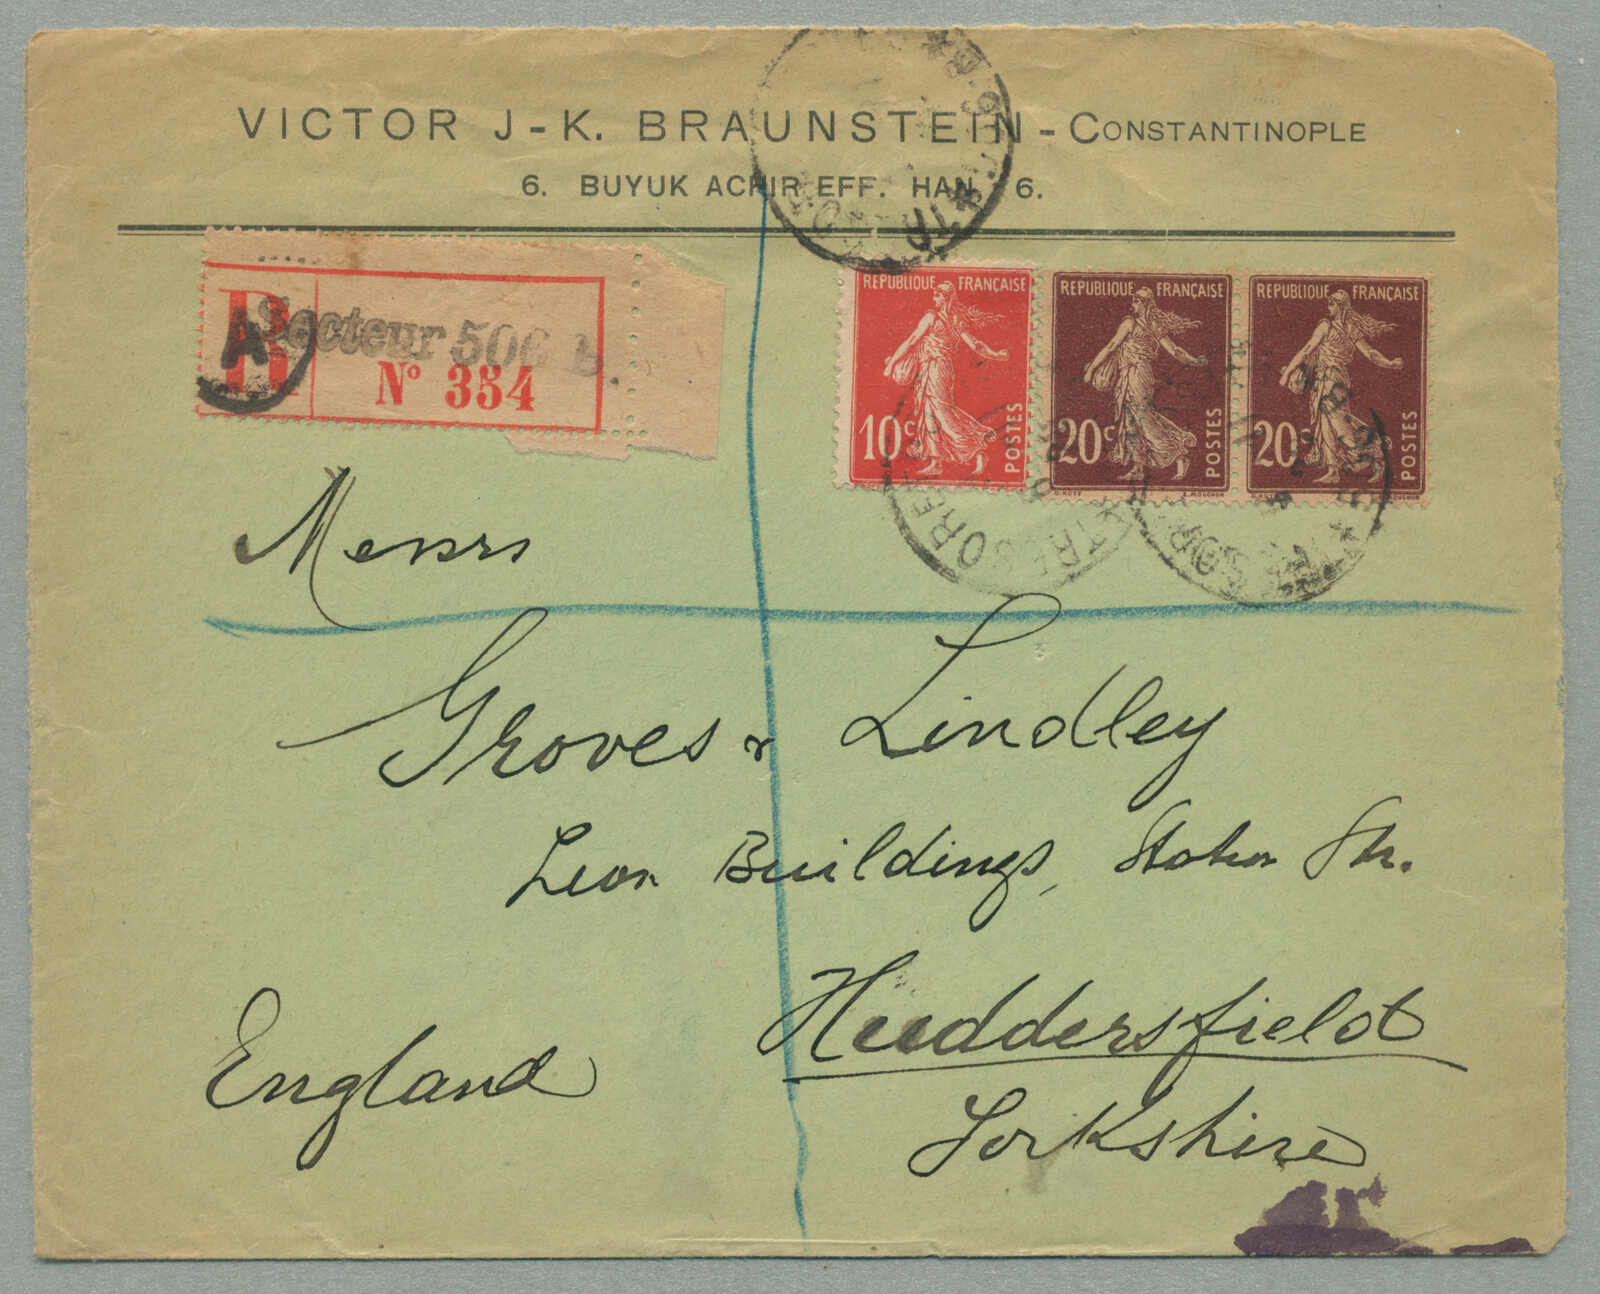 VICTOR J-K. BRAUNSTEIN - CONSTANTINOPLE
6. BUYUK ACHIR EFF. HAN, 6.
R
A
Secteur 506 B.
N° 354
REPUBLIQUE FRANÇAISE
10c
POSTES
REPUBLIQUE FRANÇAISE
20c
POSTES
REPUBLIQUE FRANÇAISE
20c
POSTES
Messrs
Groves & Lindley
Lion Buildings, Station Str.
Huddersfield
England
Yorkshire